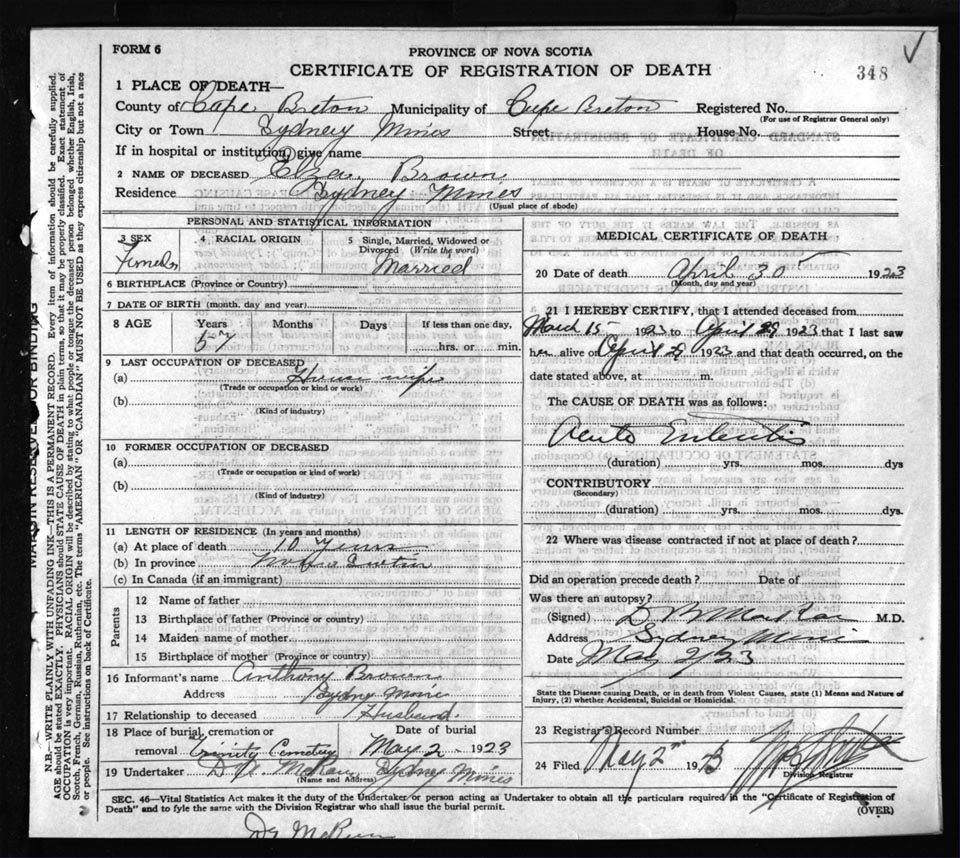 FORM 6
PROVINCE OF NOVA SCOTIA
CERTIFICATE OF REGISTRATION OF DEATH
348
1 PLACE OF DEATH—
County of Cape Breton Municipality of Cape Breton Registered No.
(For use of Registrar General only)
City or Town Sydney Mines Street House No.
If in hospital or institution, give name
2 NAME OF DECEASED Brown
Residence Sydney Mines
(Usual place of abode)
PERSONAL AND STATISTICAL INFORMATION
3 SEX 4 RACIAL ORIGIN 5 Single, Married, Widowed or Divorced (Write the word)
Female Married
6 BIRTHPLACE (Province or Country)
7 DATE OF BIRTH (month, day and year)
8 AGE Years Months Days If less than one day,
57 hrs. or min.
9 LAST OCCUPATION OF DECEASED
(a) House wife
(Trade or occupation or kind or work)
(b)
(Kind of industry)
10 FORMER OCCUPATION OF DECEASED
(a)
(Trade or occupation or kind of work)
(b)
(Kind of industry)
11 LENGTH OF RESIDENCE (In years and months)
(a) At place of death 10 years
(b) In province
(c) In Canada (if an immigrant)
Parents
12 Name of father
13 Birthplace of father (Province or country)
14 Maiden name of mother
15 Birthplace of mother (Province or country)
16 Informant's name Anthony Brown
Address Sydney Mines
17 Relationship to deceased Husband.
18 Place of burial, cremation or removal Trinity Cemetery Date of burial May 2 1923
19 Undertaker Sydney Mines
(Name and Address)
MEDICAL CERTIFICATE OF DEATH
20 Date of death April 30 1923
(Month, day and year)
21 I HEREBY CERTIFY, that I attended deceased from
March 15 1923 to April 29 1923 that I last saw
her alive on April 29 1923 and that death occurred, on the
date stated above, at m.
The CAUSE OF DEATH was as follows:
Acute Enteritis
(duration) yrs. mos. dys
CONTRIBUTORY
(Secondary)
(duration) yrs. mos. dys.
22 Where was disease contracted if not at place of death?
Did an operation precede death? Date of
Was there an autopsy?
(Signed) M.D.
Address Sydney Mines
Date May 2/23
State the Disease causing Death, or in death from Violent Causes, state (1) Means and Nature of
Injury, (2) whether Accidental, Suicidal or Homicidal.
23 Registrar's Record Number
24 Filed May 2nd 1923
Division Registrar
SEC. 46—Vital Statistics Act makes it the duty of the Undertaker or person acting as Undertaker to obtain all the particulars required in the "Certificate of Registration of
Death" and to fyle the same with the Division Registrar who shall issue the burial permit. (OVER)
MARGIN RESERVED FOR BINDING
N.B.—WRITE PLAINLY WITH UNFADING INK—THIS IS A PERMANENT RECORD. Every item of information should be carefully supplied.
AGE should be stated EXACTLY. PHYSICIANS should STATE CAUSE OF DEATH in plain terms, so that it may be properly classified. Exact statement of
OCCUPATION is very important. RACIAL ORIGIN will be described by stating to what people or tongue the deceased person belonged whether English, Irish,
Scotch, French, German, Russian, Ruthenian, etc. The terms "AMERICAN" OR "CANADIAN" MUST NOT BE USED as they express citizenship but not a race
or people. See instructions on back of Certificate.